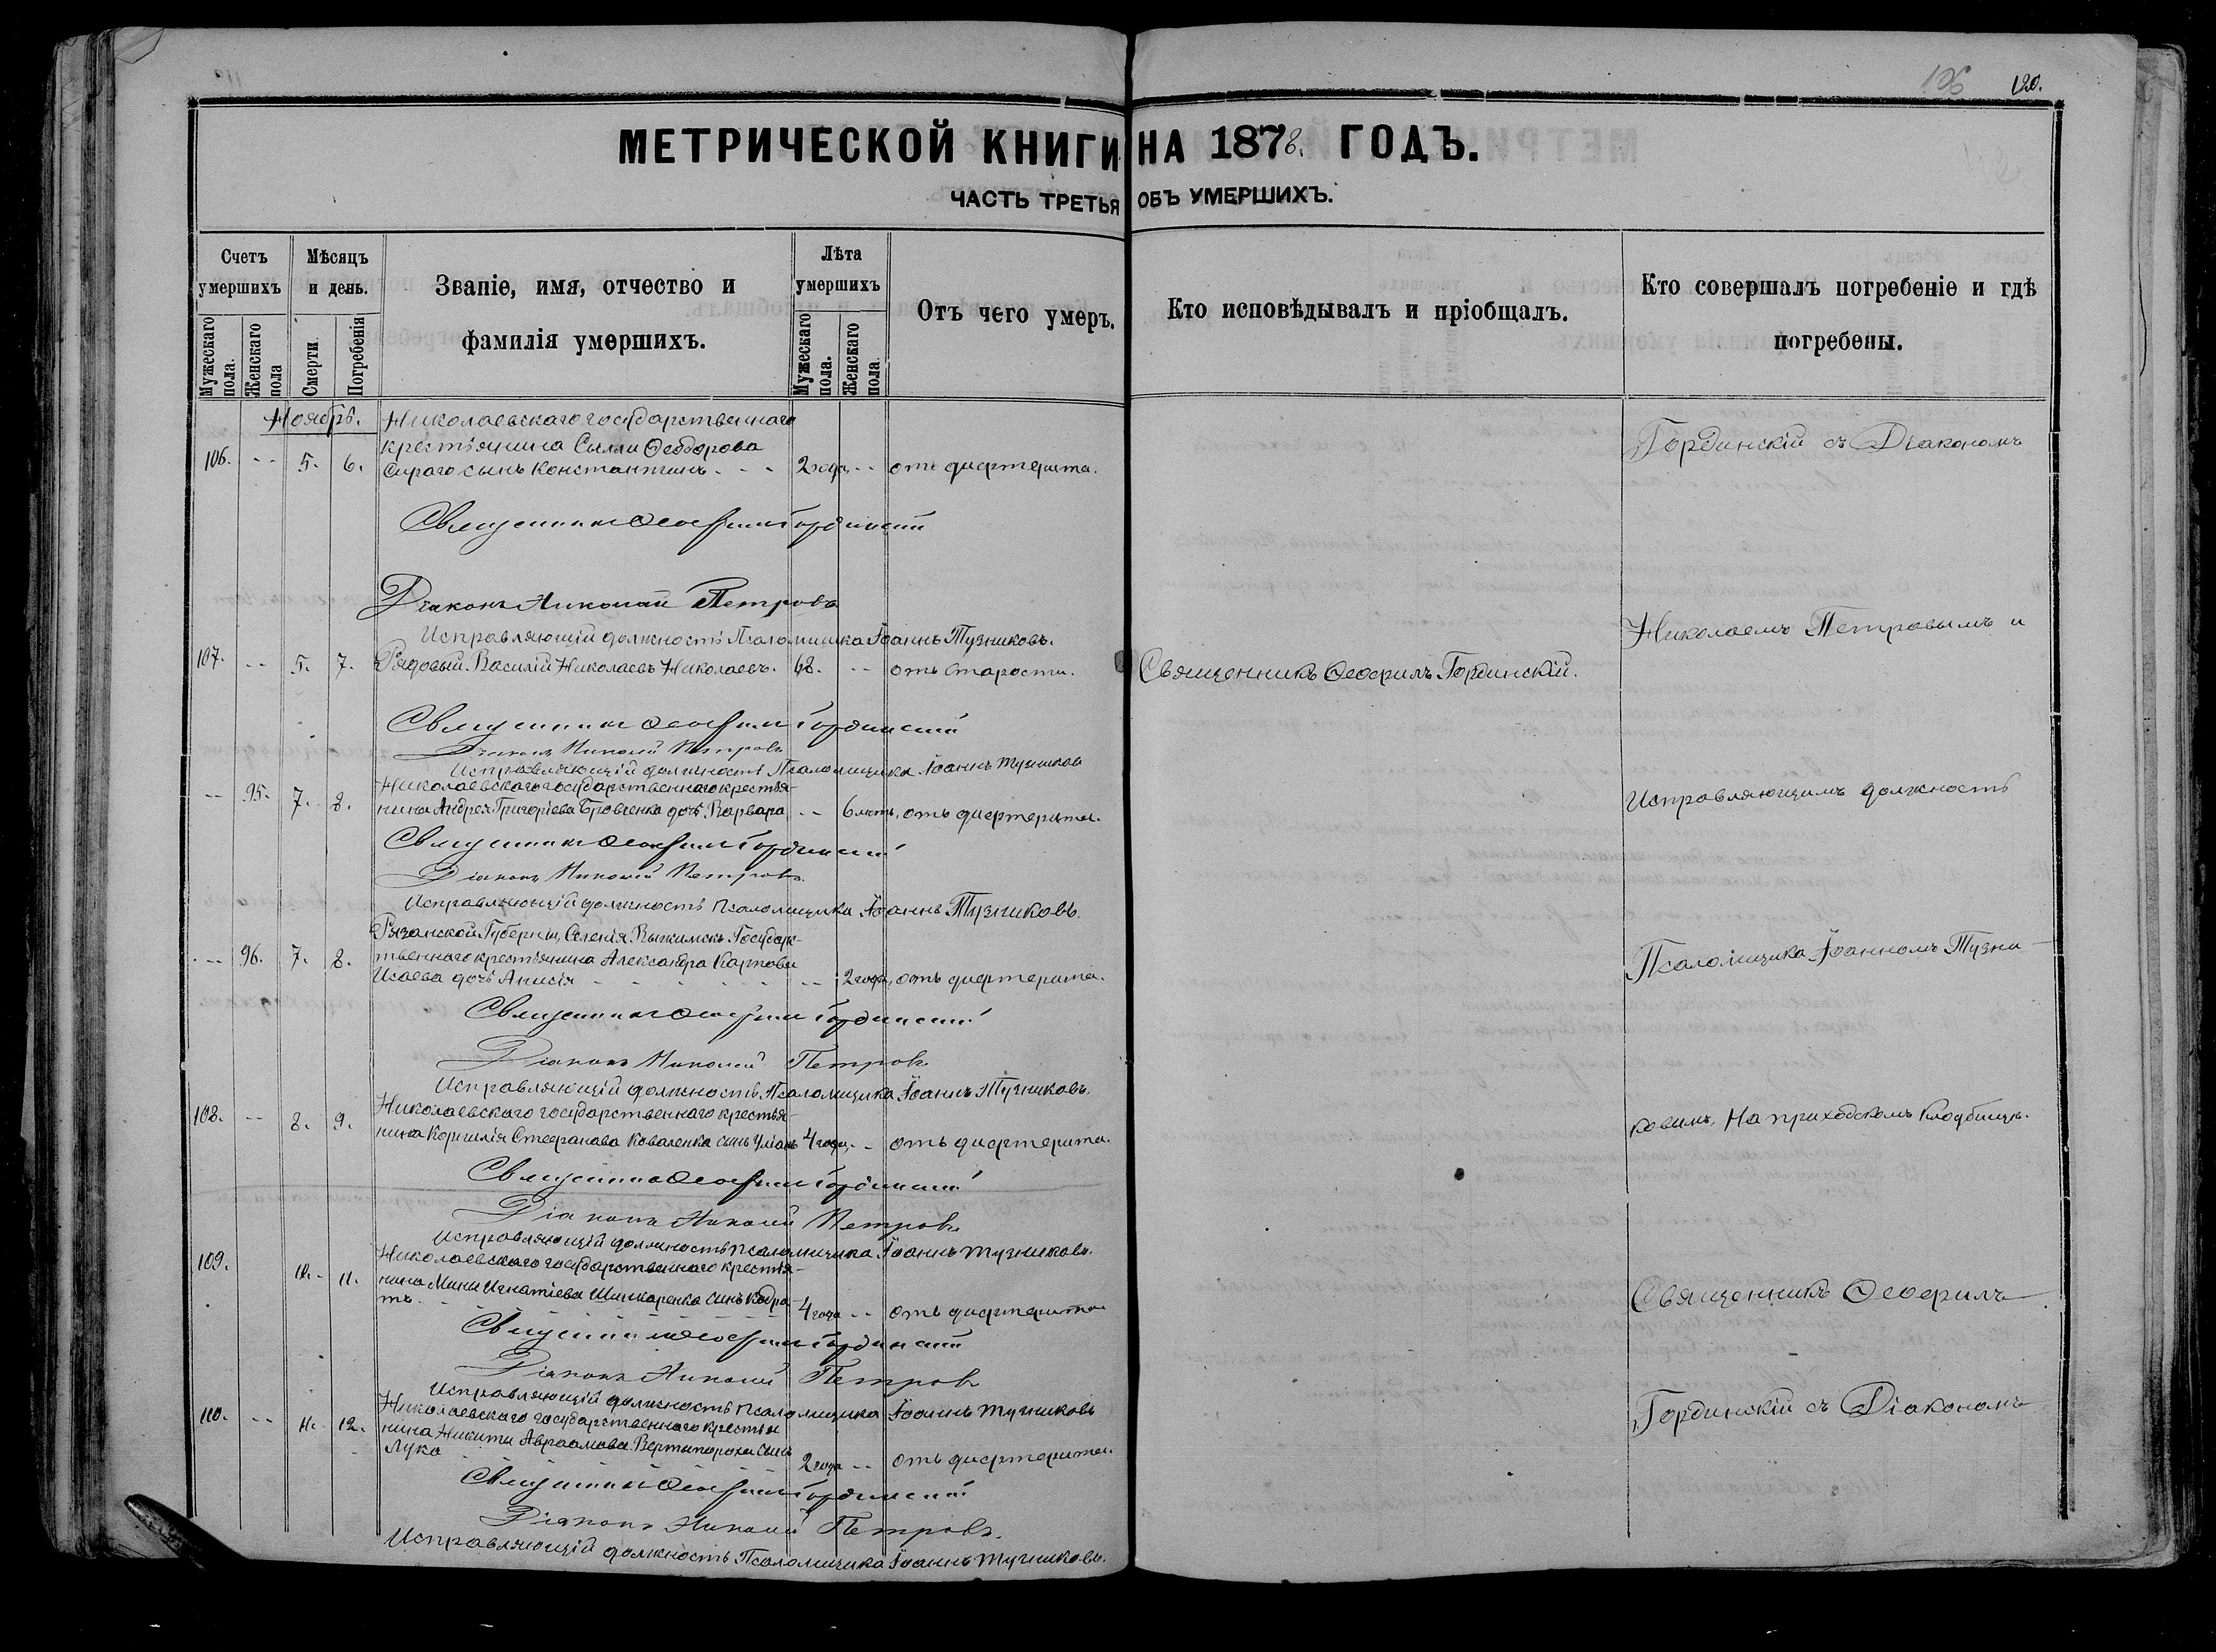 106 120.
МЕТРИЧЕСКОЙ КНИГИ НА 1878. ГОДЪ.
ЧАСТЬ ТРЕТЬЯ ОБЪ УМЕРШИХЪ.
Счетъ умершихъ
Мужескаго пола.
Женскаго пола
Мѣсяцъ и день.
Смерти.
Погребенія
Званіе, имя, отчество и
фамилія умершихъ.
Лѣта умершихъ
Мужескаго пола.
Женскаго пола.
Отъ чего умеръ.
Кто исповѣдывалъ и пріобщалъ.
Кто совершалъ погребеніе и гдѣ
погребены.
Ноябрь. Николаевскаго государственнаго
крестьянина Сыллы Ѳеодорова
106. -- 5. 6. Сираго сынъ Константинъ. - - - 2 года -- отъ дифтерита.
Священникъ Ѳеофилъ Гординскій
Діаконъ Николай Петровъ
Исправляющій должность Псаломщика Іоаннъ Тузниковъ.
107. -- 5. 7. Рядовый Василій Николаевъ Николаевъ. 68. -- отъ старости. Священникъ Ѳеофилъ Гординскій.
Священникъ Ѳеофилъ Гординскій
Діаконъ Николай Петровъ
Исправляющій должность Псаломщика Іоаннъ Тузниковъ
Николаевскаго государственнаго крестья-
-- 95. 7. 8. нина Андрея Григоріева Бровченка дочь Варвара -- 6 лѣтъ, отъ дифтерита.
Священникъ Ѳеофилъ Гординскій
Діаконъ Николай Петровъ.
Исправляющій должность Псаломщика Іоаннъ Тузниковъ.
Рязанской Губерніи, Селенія Государ-
-- 96. 7. 8. твеннаго крестьянина Александра Карпова
Исаева дочь Анисія - - - - - - -- 2 года, отъ дифтерита.
Священникъ Ѳеофилъ Гординскій
Діаконъ Николай Петровъ
Исправляющій должность Псаломщика Іоаннъ Тузниковъ.
Николаевскаго государственнаго крестья-
108. -- 8. 9. нина Корнилія Стефанова Коваленка сынъ 4 года, -- отъ дифтерита.
Священникъ Ѳеофилъ Гординскій
Діаконъ Николай Петровъ
Исправляющій должность Псаломщика Іоаннъ Тузниковъ.
Николаевскаго государственнаго крестья-
109. 10. 11. нина Мины Игнатіева Шинкаренка сынъ Кодра-
тъ. - - - - - - 4 года -- отъ дифтерита
Священникъ Ѳеофилъ Гординскій
Діаконъ Николай Петровъ
Исправляющій должность Псаломщика Іоаннъ Тузниковъ
Николаевскаго государственнаго крестья
110. -- 11. 12. нина Никиты Авраамова Вертипороха сынъ
Лука - - - - - - 2 года -- отъ дифтерита.
Священникъ Ѳеофилъ Гординскій
Діаконъ Николай Петровъ.
Исправляющій должность Псаломщика Іоаннъ Тузниковъ.
Гординскій съ Діакономъ
Николаемъ Петровымъ и
Исправляющимъ должность
Псаломщика Іоанномъ Тузни-
ковымъ, На приходскомъ Кладбищѣ.
Священникъ Ѳеофилъ
Гординскій съ Діакономъ